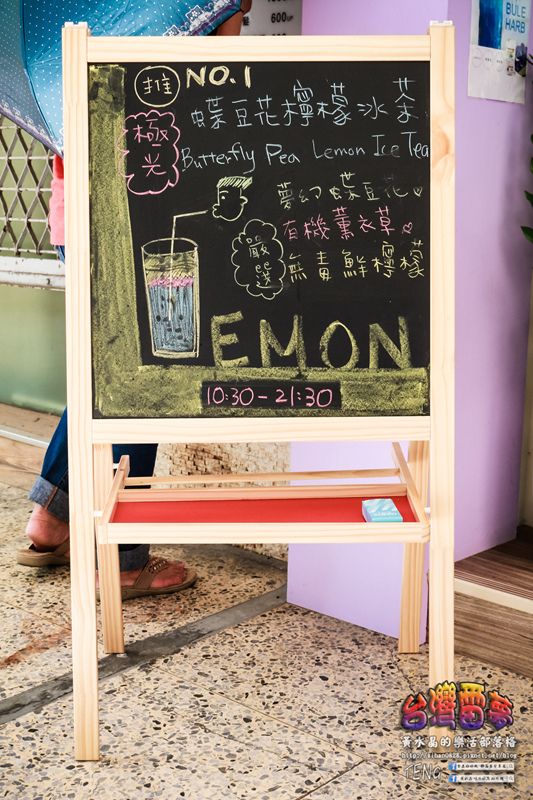 推 NO.1
極光
蝶豆花檸檬冰茶
Butterfly Pea Lemon Ice Tea
夢幻蝶豆花
有機薰衣草
嚴選
無毒鮮檸檬
LEMON
10:30-21:30
BULE
HARB
600
台灣雷夢
黃水晶的樂活部落格
http://sihan0828.pixnet.net/blog
TENG